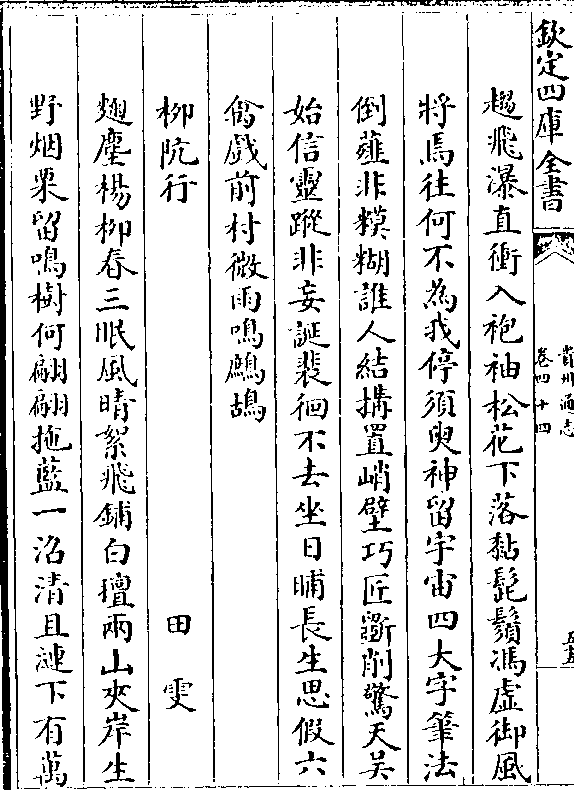 欽定四庫全書
貴州通志
卷四十四
趨飛瀑直衝入袍袖松花下落黏髭鬚馮虛御風
將焉往何不為我停須臾神留宇宙四大字筆法
倒薤非糢糊誰人結搆置峭壁巧匠斲削驚天吴
始信靈蹤非妄誕裴徊不去坐日晡長生思假六
禽戲前村微雨鳴鷓鴣
柳阬行 田雯
麹塵楊柳春三眠風晴絮飛鋪白氊兩山夾岸生
野烟栗留鳴樹何翩翩拖藍一沼清且漣下有萬